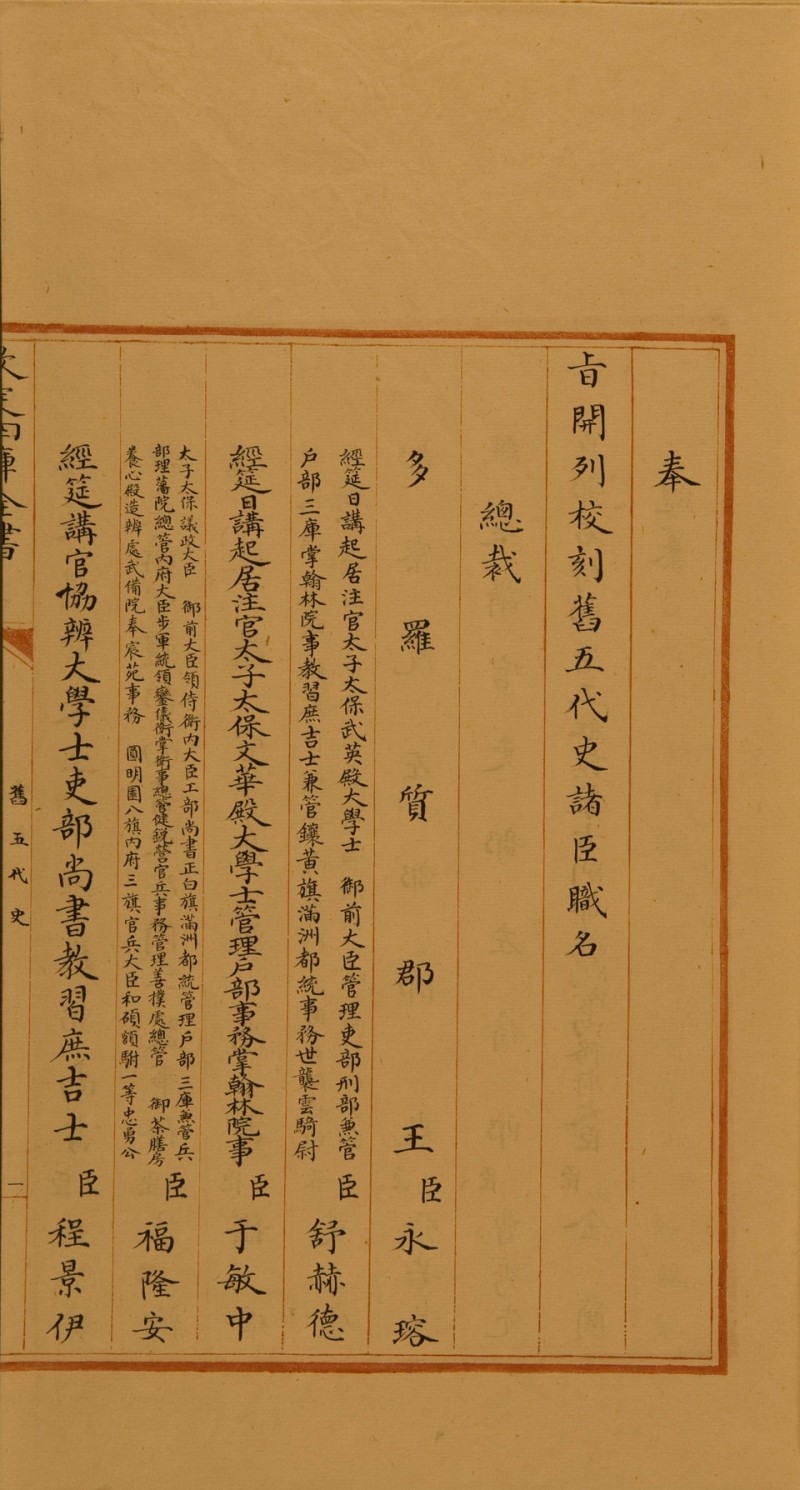 奉
旨開列校刻舊五代史諸臣職名
總裁
多羅質郡王臣永瑢
經筵日講起居注官太子太保武英殿大學士 御前大臣管理吏部刑部兼管
戶部三庫掌翰林院事教習庶吉士兼管鑲黃旗滿洲都統事務世襲雲騎尉
臣舒赫德
經筵日講起居注官太子太保文華殿大學士管理戶部事務掌翰林院事臣于敏中
太子太保議政大臣 御前大臣領侍衛內大臣工部尚書正白旗滿洲都統管理戶部三庫兼管兵
部理藩院總管內府大臣步軍統領鑾儀衛掌衛事總管健銳營官兵事務管理善撲處總管 御茶膳房
養心殿造辨處武備院奉宸苑事務 圓明園八旗內府三旗官兵大臣和碩額駙一等忠勇公
臣福隆安
經筵講官協辨大學士吏部尚書教習庶吉士臣程景伊
舊五代史
一